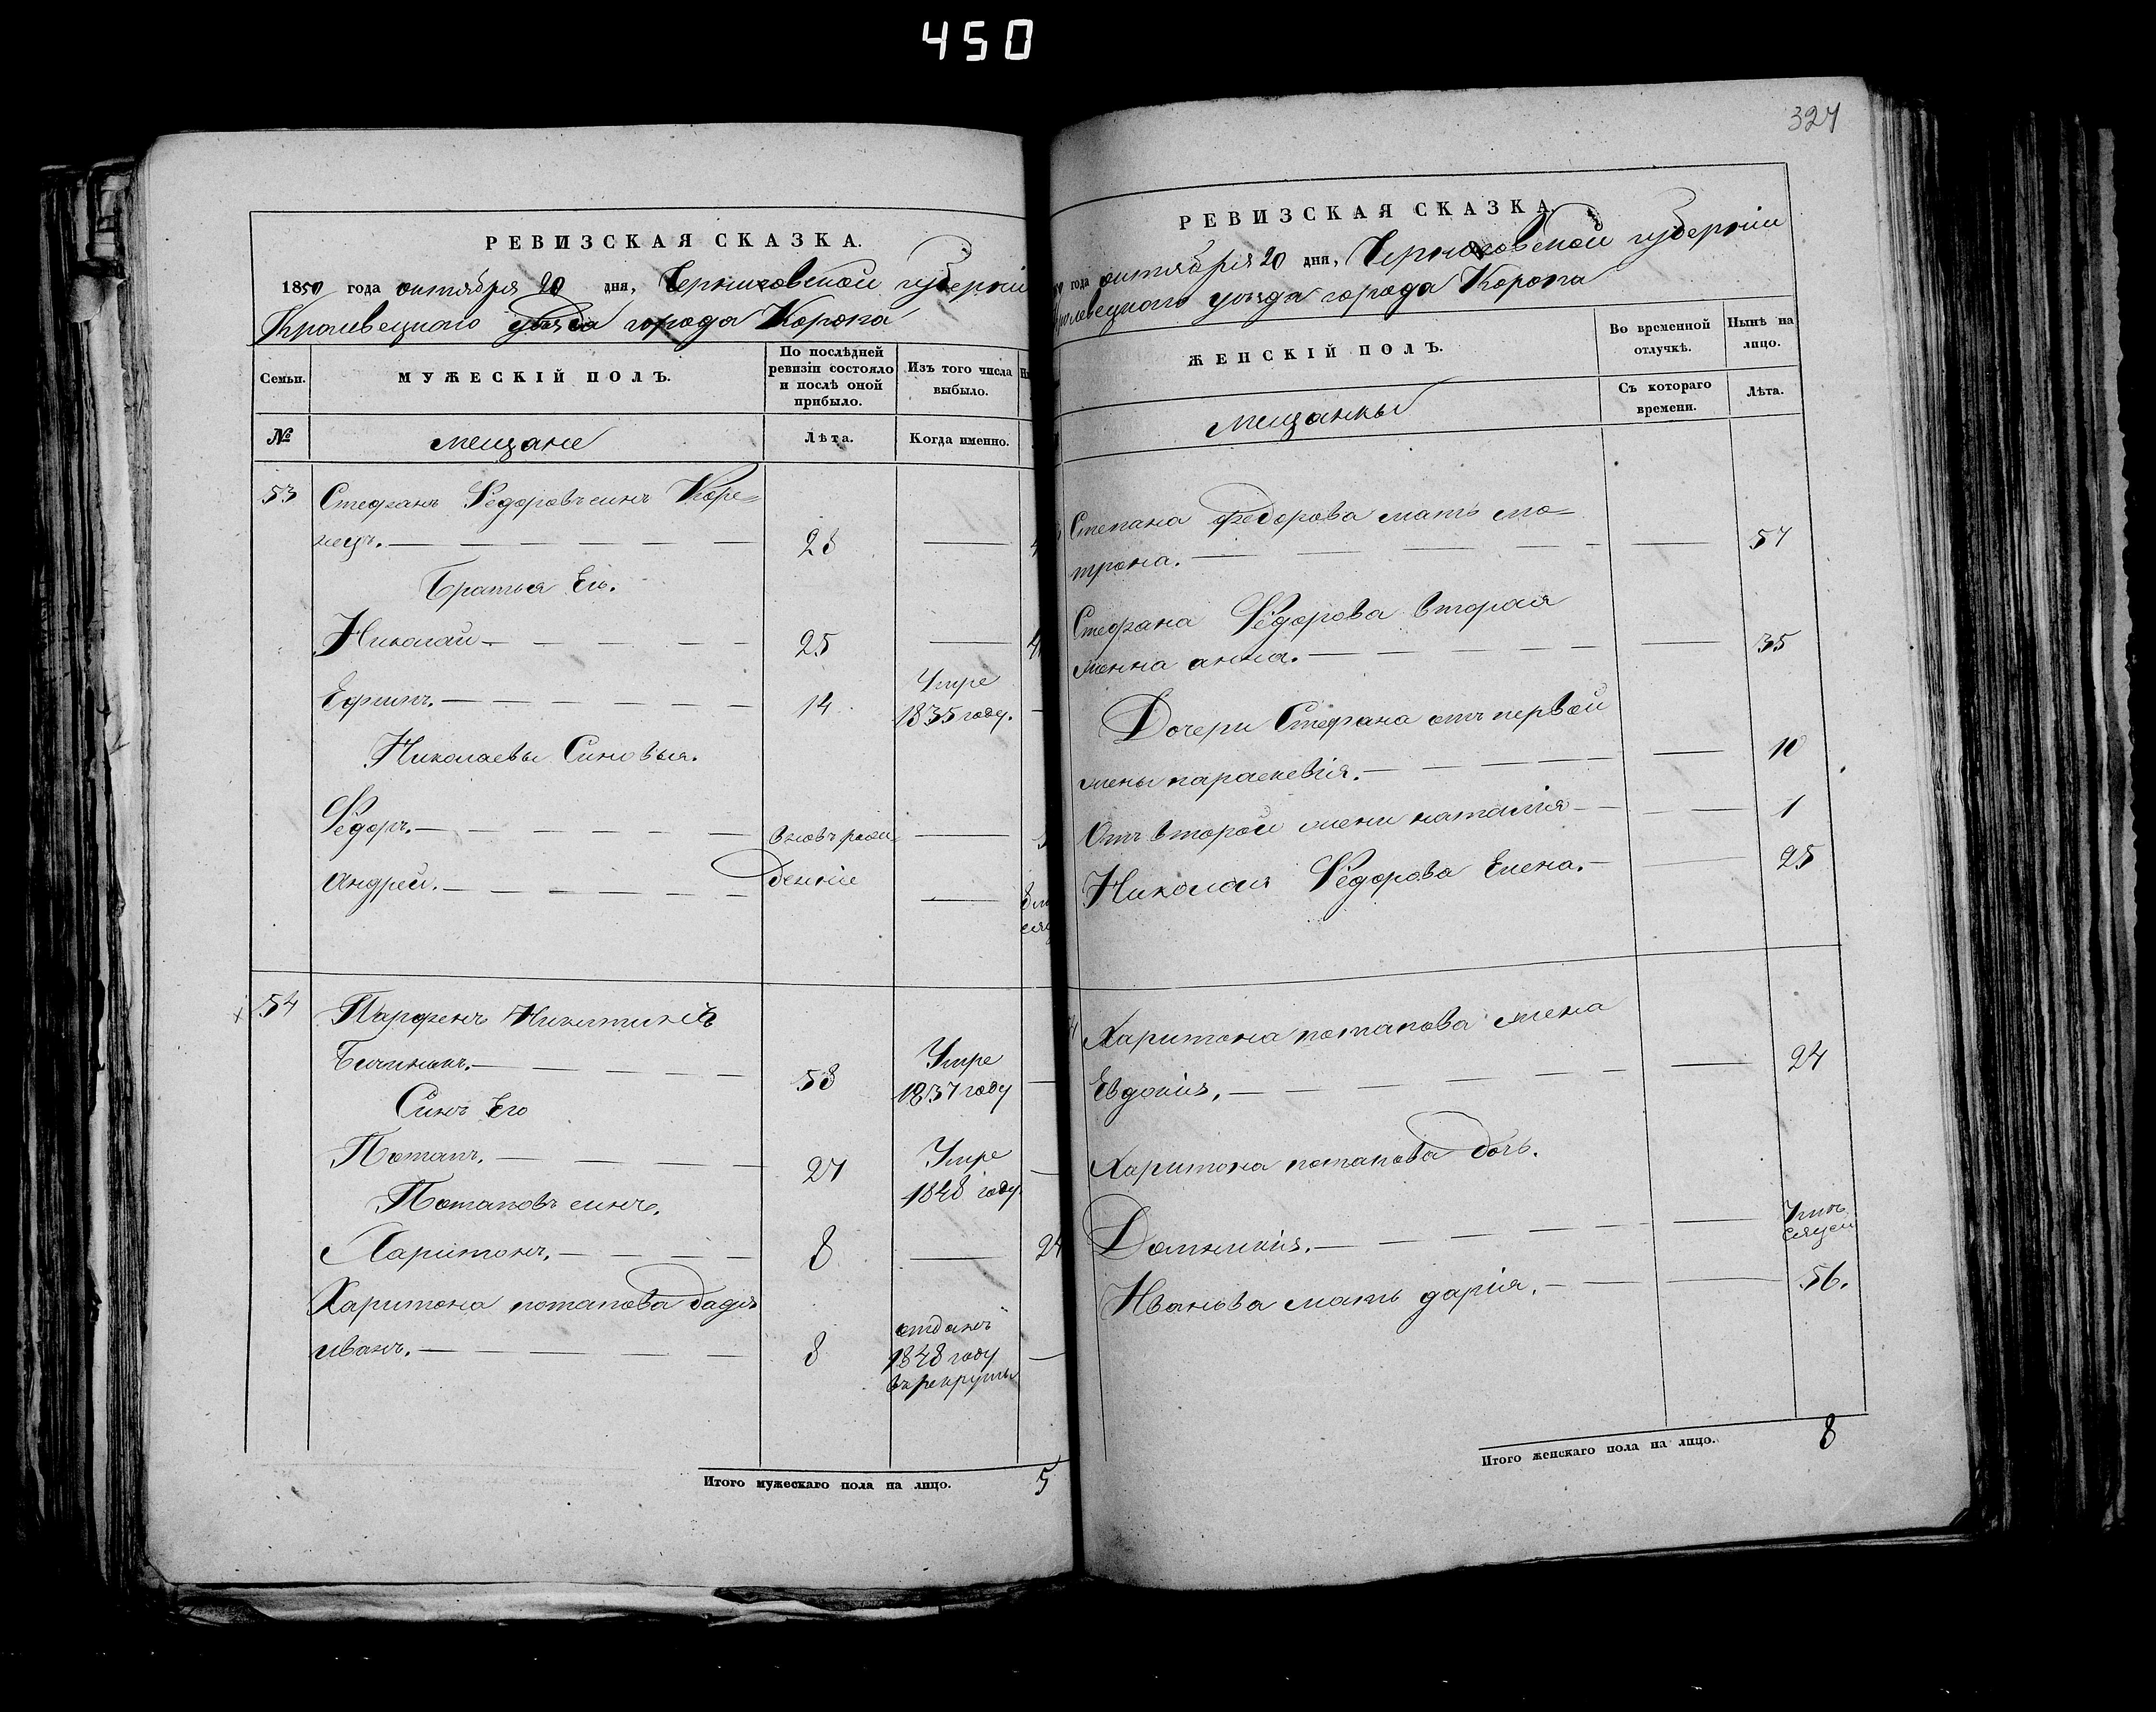 450
РЕВИЗСКАЯ СКАЗКА.
1850 года октября 20 дня, Черниговской губерніи
Кролевецкого уѣзда города Коропа
Семьи.
МУЖЕСКІЙ ПОЛЪ.
По послѣдней
ревизіи состояло
и послѣ оной
прибыло.
Изъ того числа
выбыло.
№
мещане
Лѣта.
Когда именно.
53 Стефанъ Федоровъ синъ Коре=
нецъ. 28
Братья Его.
Николай 25
Ефимъ. 14 Умре
1835 году.
Николаевы Синовья.
Федоръ. вновь рож
Андрей. денніе
54 Парфенъ Никитинъ
58 Умре
1837 году
Синъ Его
Потапъ. 27 Умре
1848 году.
Потаповъ синъ.
Харитонъ. 8 24
Харитона потапова дядя
иванъ. 8 отданъ
1848 году
въ рекруты
Итого мужескаго пола на лицо. 5
324
РЕВИЗСКАЯ СКАЗКА.
года октября 20 дня, Черниговской губерніи
ролевецкого уѣзда города Коропа
ЖЕНСКІЙ ПОЛЪ.
Во временной
отлучкѣ.
Нынѣ на
лицо.
мещанкы
Съ котораго
времени.
Лѣта.
Степана федорова мать мо=
трона. 57
Стефана Федорова вторая
женна анна. 35
Дочери Стефана отъ первой
жены параскевія. 10
Отъ второй жени наталія 1
Николая Федорова Елена. 25
Харитона потапова жена
Евдокія. 24
Харитона потапова дочь.
Домникія.
Иванова мать дарія. 56.
Итого женскаго пола на лицо. 8